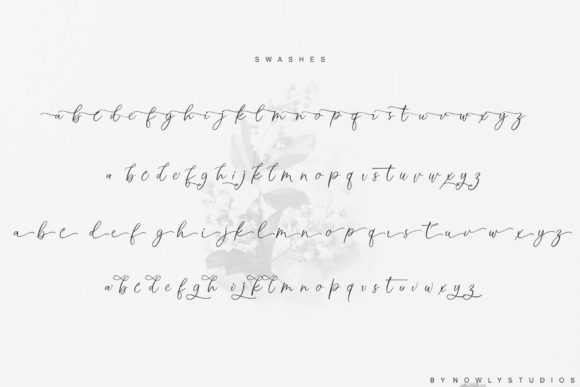 SWASHES
a b c d e f g h i j k l m n o p q r s t u v w x y z
a b c d e f g h i j k l m n o p q r s t u v w x y z
a b c d e f g h i j k l m n o p q r s t u v w x y z
a b c d e f g h i j k l m n o p q r s t u v w x y z
BY NOWLYSTUDIOS